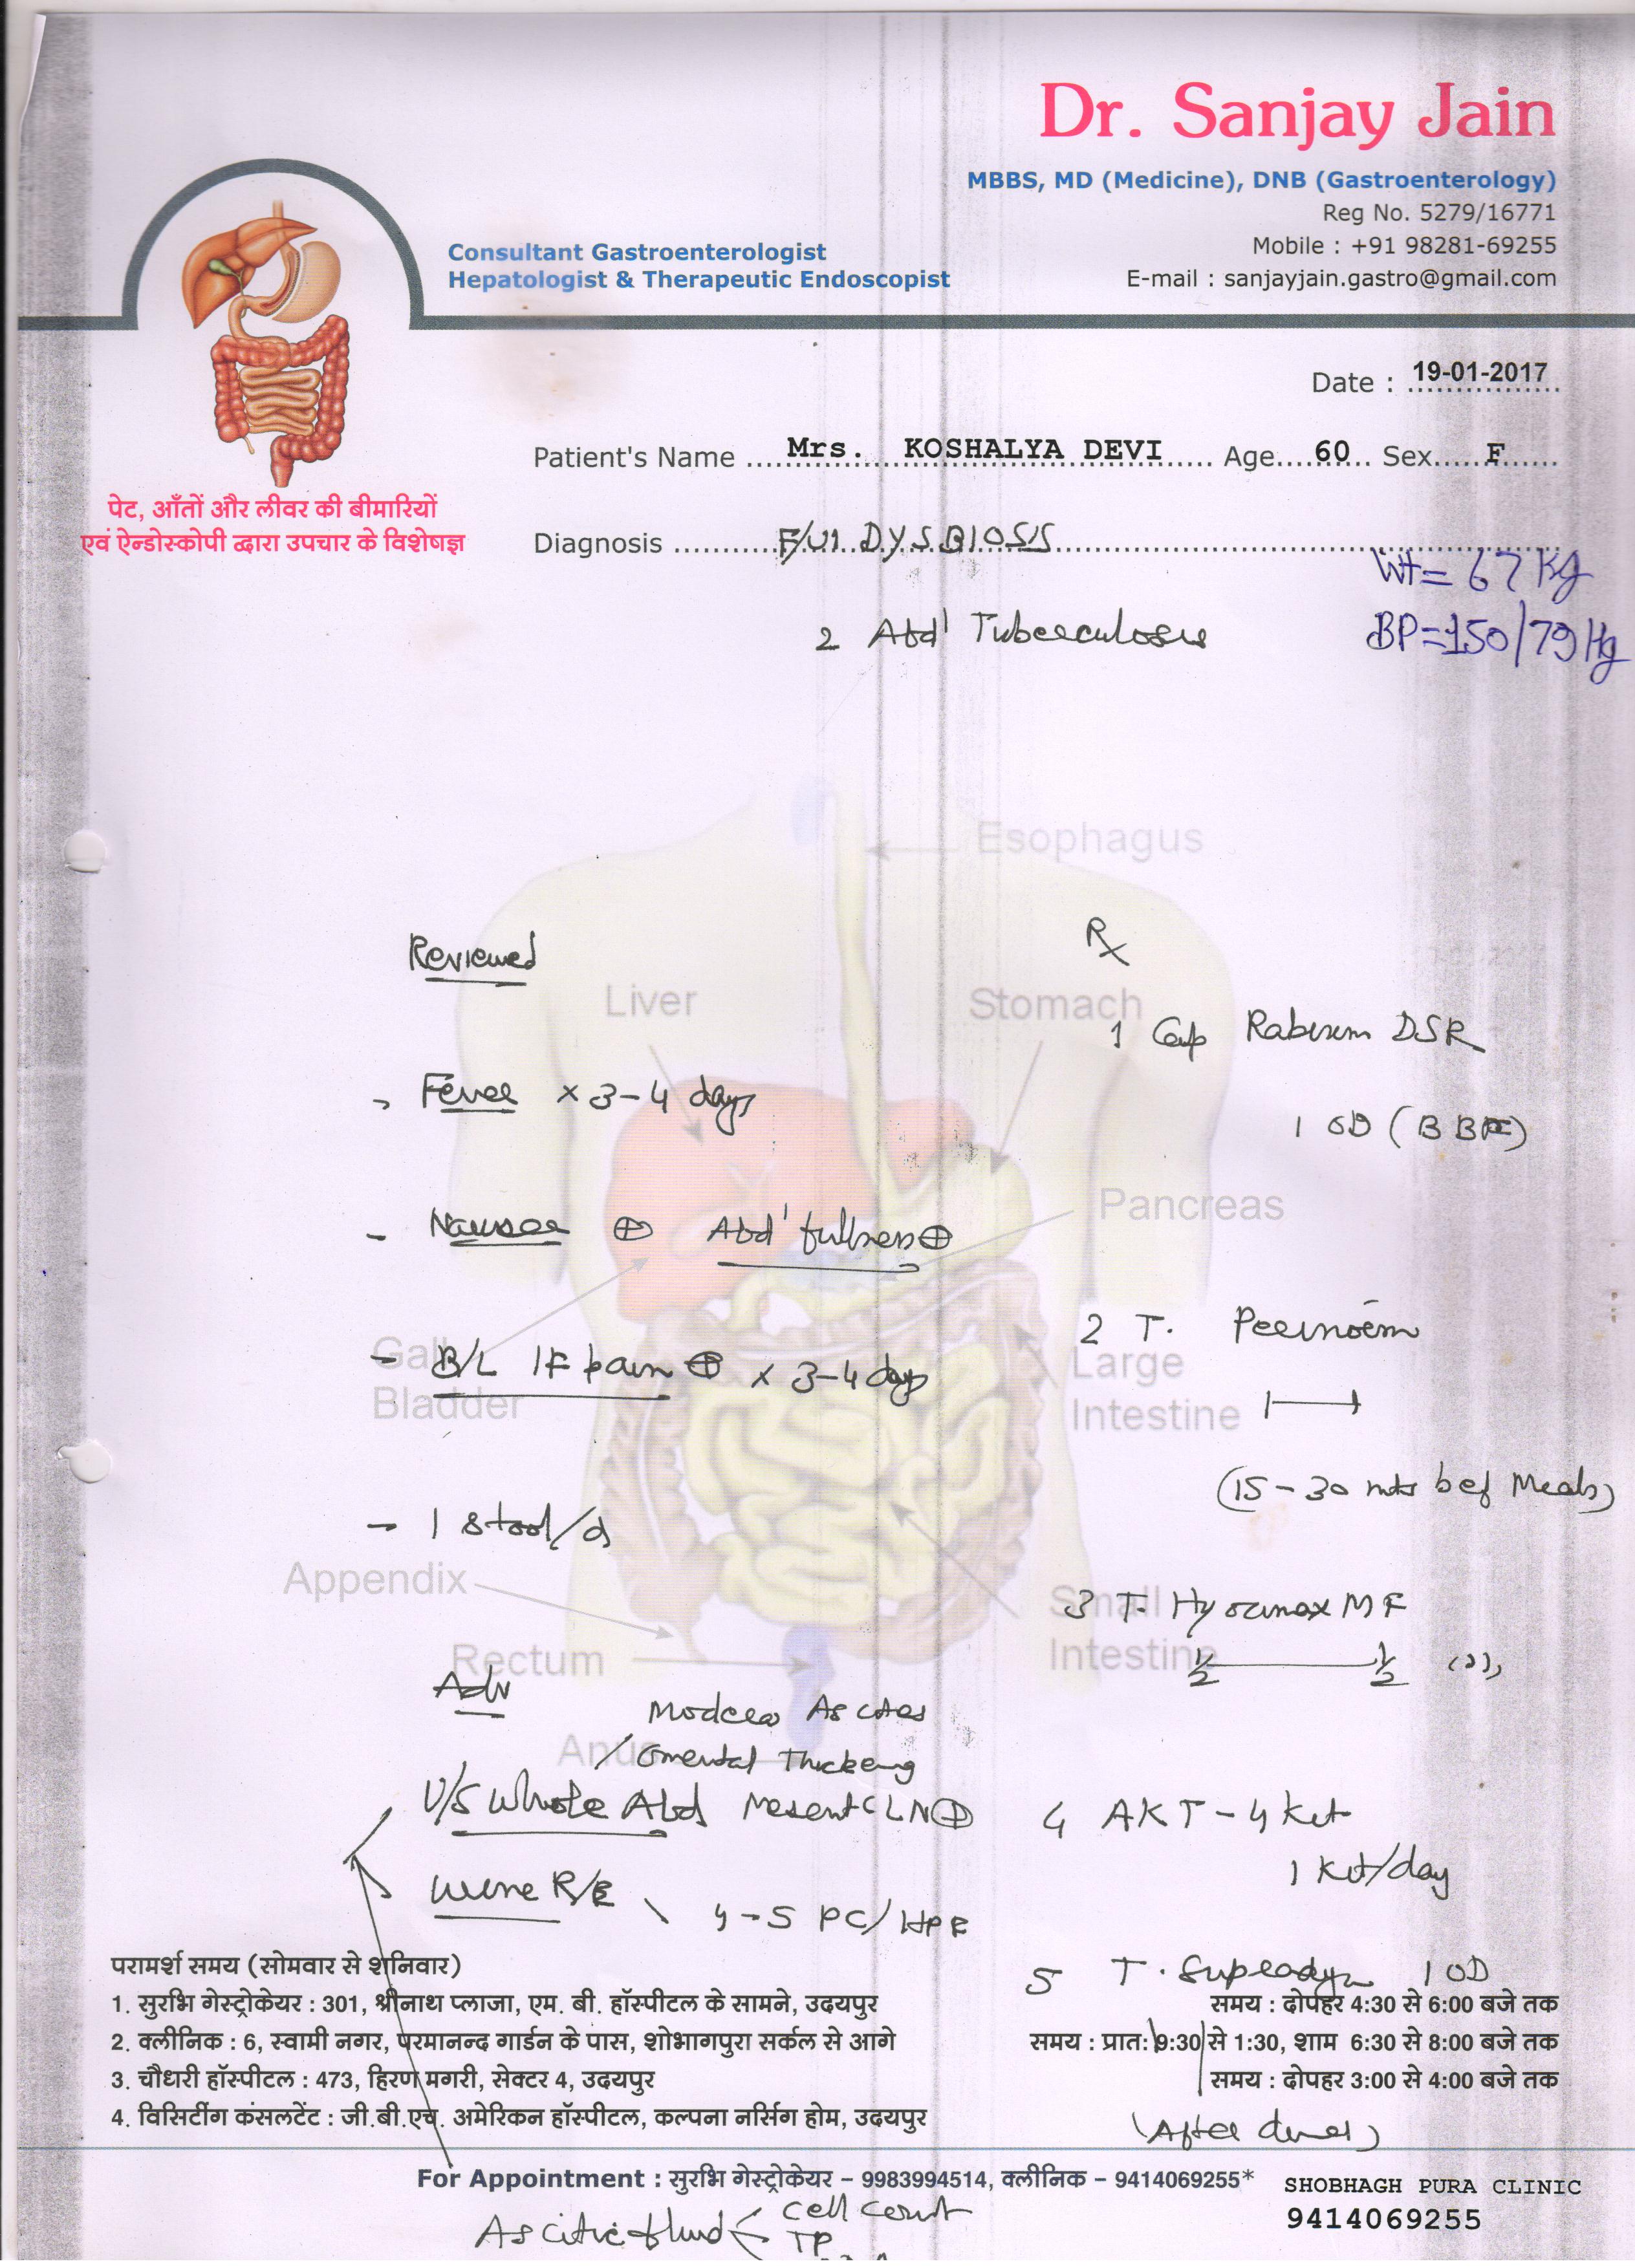 Dr. Sanjay Jain
MBBS, MD (Medicine), DNB (Gastroenterology)
Reg No. 5279/16771
Mobile : +91 98281-69255
E-mail : sanjayjain.gastro@gmail.com
Consultant Gastroenterologist
Hepatologist & Therapeutic Endoscopist
पेट, आँतों और लीवर की बीमारियों
एवं ऐन्डोस्कोपी द्वारा उपचार के विशेषज्ञ
Date : 19-01-2017
Patient's Name Mrs. KOSHALYA DEVI Age 60 Sex F
Diagnosis DYSBIOSIS
Wt = 67 Kg
BP=150/79 Hg
2 Abd' Tuberculosis
Esophagus
Reviewed
Rx
Liver
Stomach
1 Cap DSR
- Fever x 3-4 days
1 OD (BBF)
Pancreas
- Nausea ⊕ Abd' fullness ⊕
2 T.
Gall
Bladder
- B/L IF pain ⊕ x 3-4 days
Large
Intestine
(15-30 mts bef Meals)
- 1 stool/d
Appendix
Small
Intestine
3 T. MF
½ ½
Rectum
Adv
Anus
Omental Thickening
U/S Whole Abd LN ⊕
4 AKT-4 Kit
1 Kit/day
Urine R/E 4-5 PC/HPF
5 T. 1 OD
(After dinner)
परामर्श समय (सोमवार से शनिवार)
1. सुरभि गेस्ट्रोकेयर : 301, श्रीनाथ प्लाजा, एम. बी. हॉस्पीटल के सामने, उदयपुर समय : दोपहर 4:30 से 6:00 बजे तक
2. क्लीनिक : 6, स्वामी नगर, परमानन्द गार्डन के पास, शोभागपुरा सर्कल से आगे समय : प्रात: 9:30 से 1:30, शाम 6:30 से 8:00 बजे तक
3. चौधरी हॉस्पीटल : 473, हिरण मगरी, सेक्टर 4, उदयपुर समय : दोपहर 3:00 से 4:00 बजे तक
4. विसिटींग कंसलटेंट : जी.बी.एच. अमेरिकन हॉस्पीटल, कल्पना नर्सिग होम, उदयपुर
For Appointment : सुरभि गेस्ट्रोकेयर – 9983994514, क्लीनिक – 9414069255*
SHOBHAGH PURA CLINIC
9414069255
Ascitic fluid cell count
TP